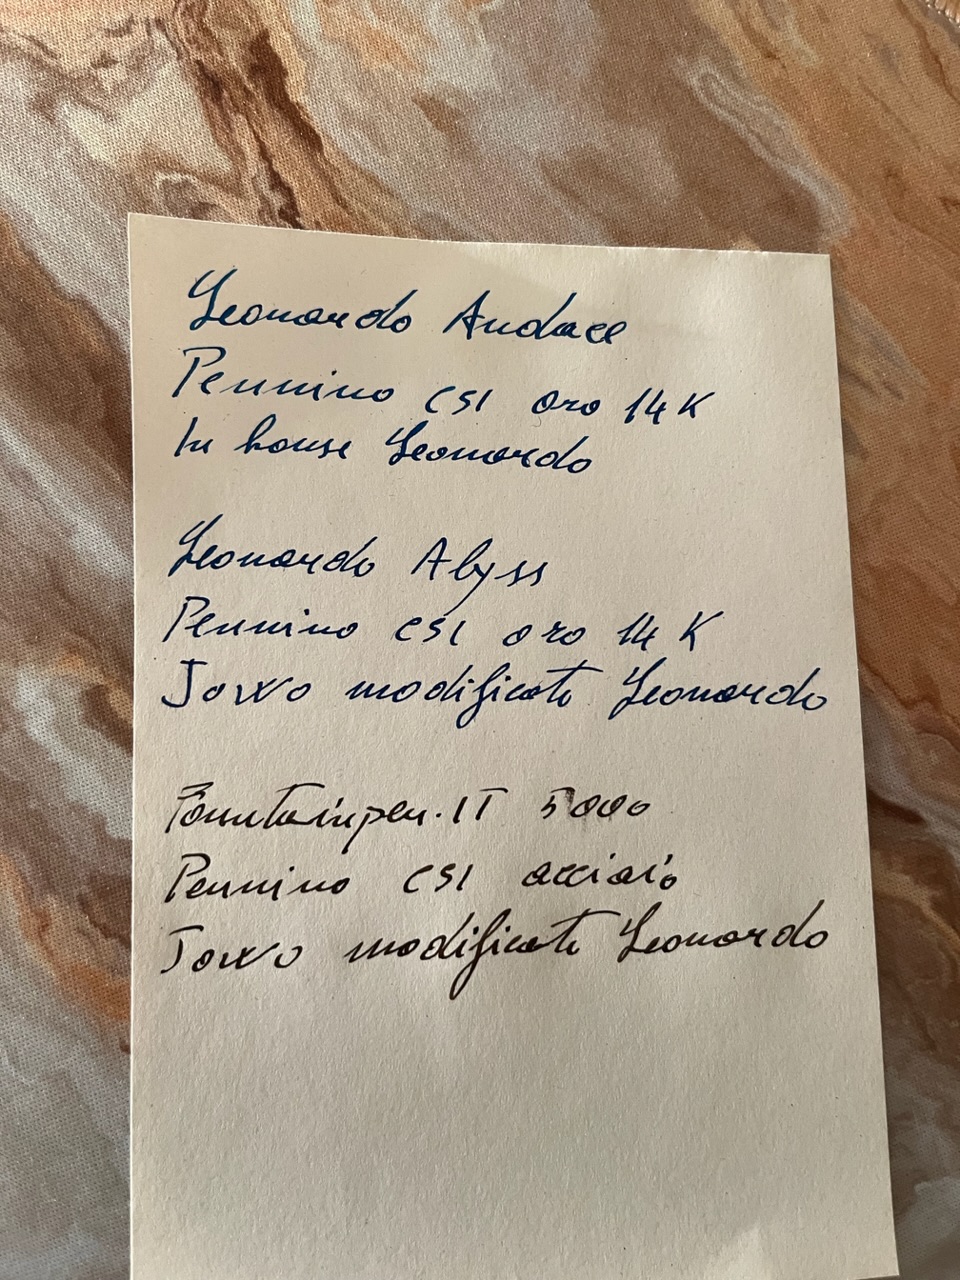 Leonardo Audace
Pennino CSI oro 14 K
In house Leonardo
Leonardo Abyss
Pennino CSI oro 14 K
Jowo modificato Leonardo
Fountainpen.IT 5000
Pennino CSI acciaio
Jowo modificato Leonardo